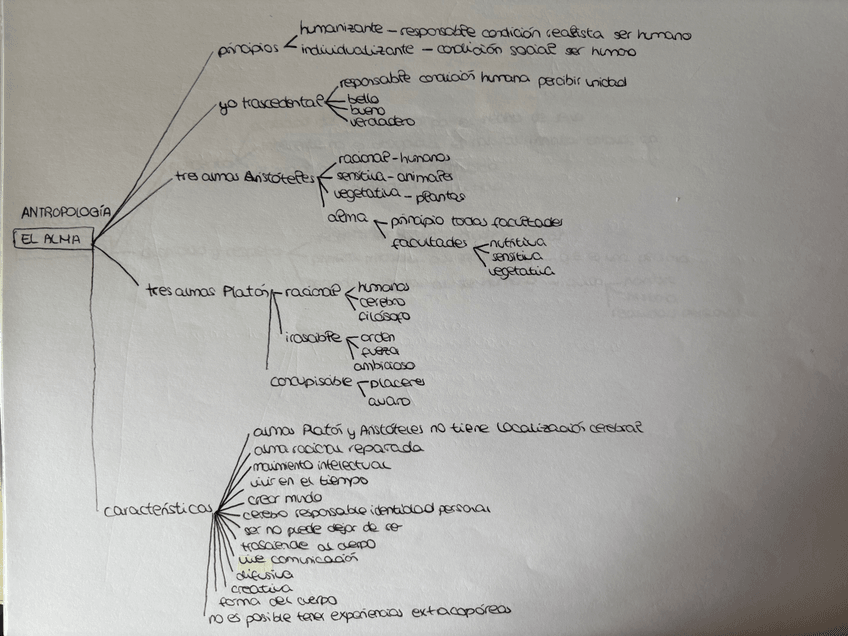 humanizante - responsable condición realista ser humano
principios
individualizante - condición social ser humano
responsable condición humana percibir unidad
yo trascedental
bello
bueno
verdadero
racional - humanos
tres almas Aristóteles
sensitiva - animales
vegetativa - plantas
ANTROPOLOGÍA
alma
principio todas facultades
EL ALMA
facultades
nutritiva
sensitiva
vegetativa
tres almas Platón
racional
humanos
cerebro
filósofo
irascible
orden
fuerza
ambicioso
concupisable
placeres
avaro
almas Platón y Aristóteles no tiene localización cerebral
alma racional reparada
movimiento intelectual
vivir en el tiempo
crear mundo
características
cerebro responsable identidad personal
ser no puede dejar de ser
trasciende al cuerpo
vive comunicación
difusiva
creativa
forma del cuerpo
no es posible tener experiencias extracopóreas